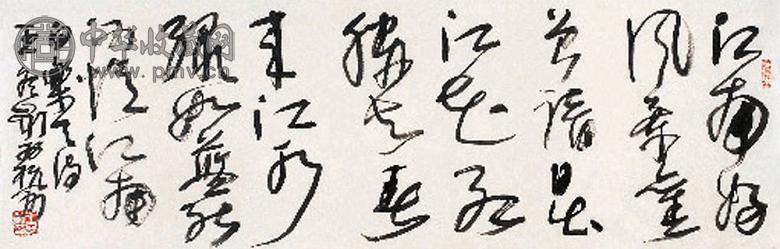 江南好
风景旧
曾谙日出
江花红
胜火春
来江水
绿如蓝能
不忆江南
白乐天词
中华收藏网